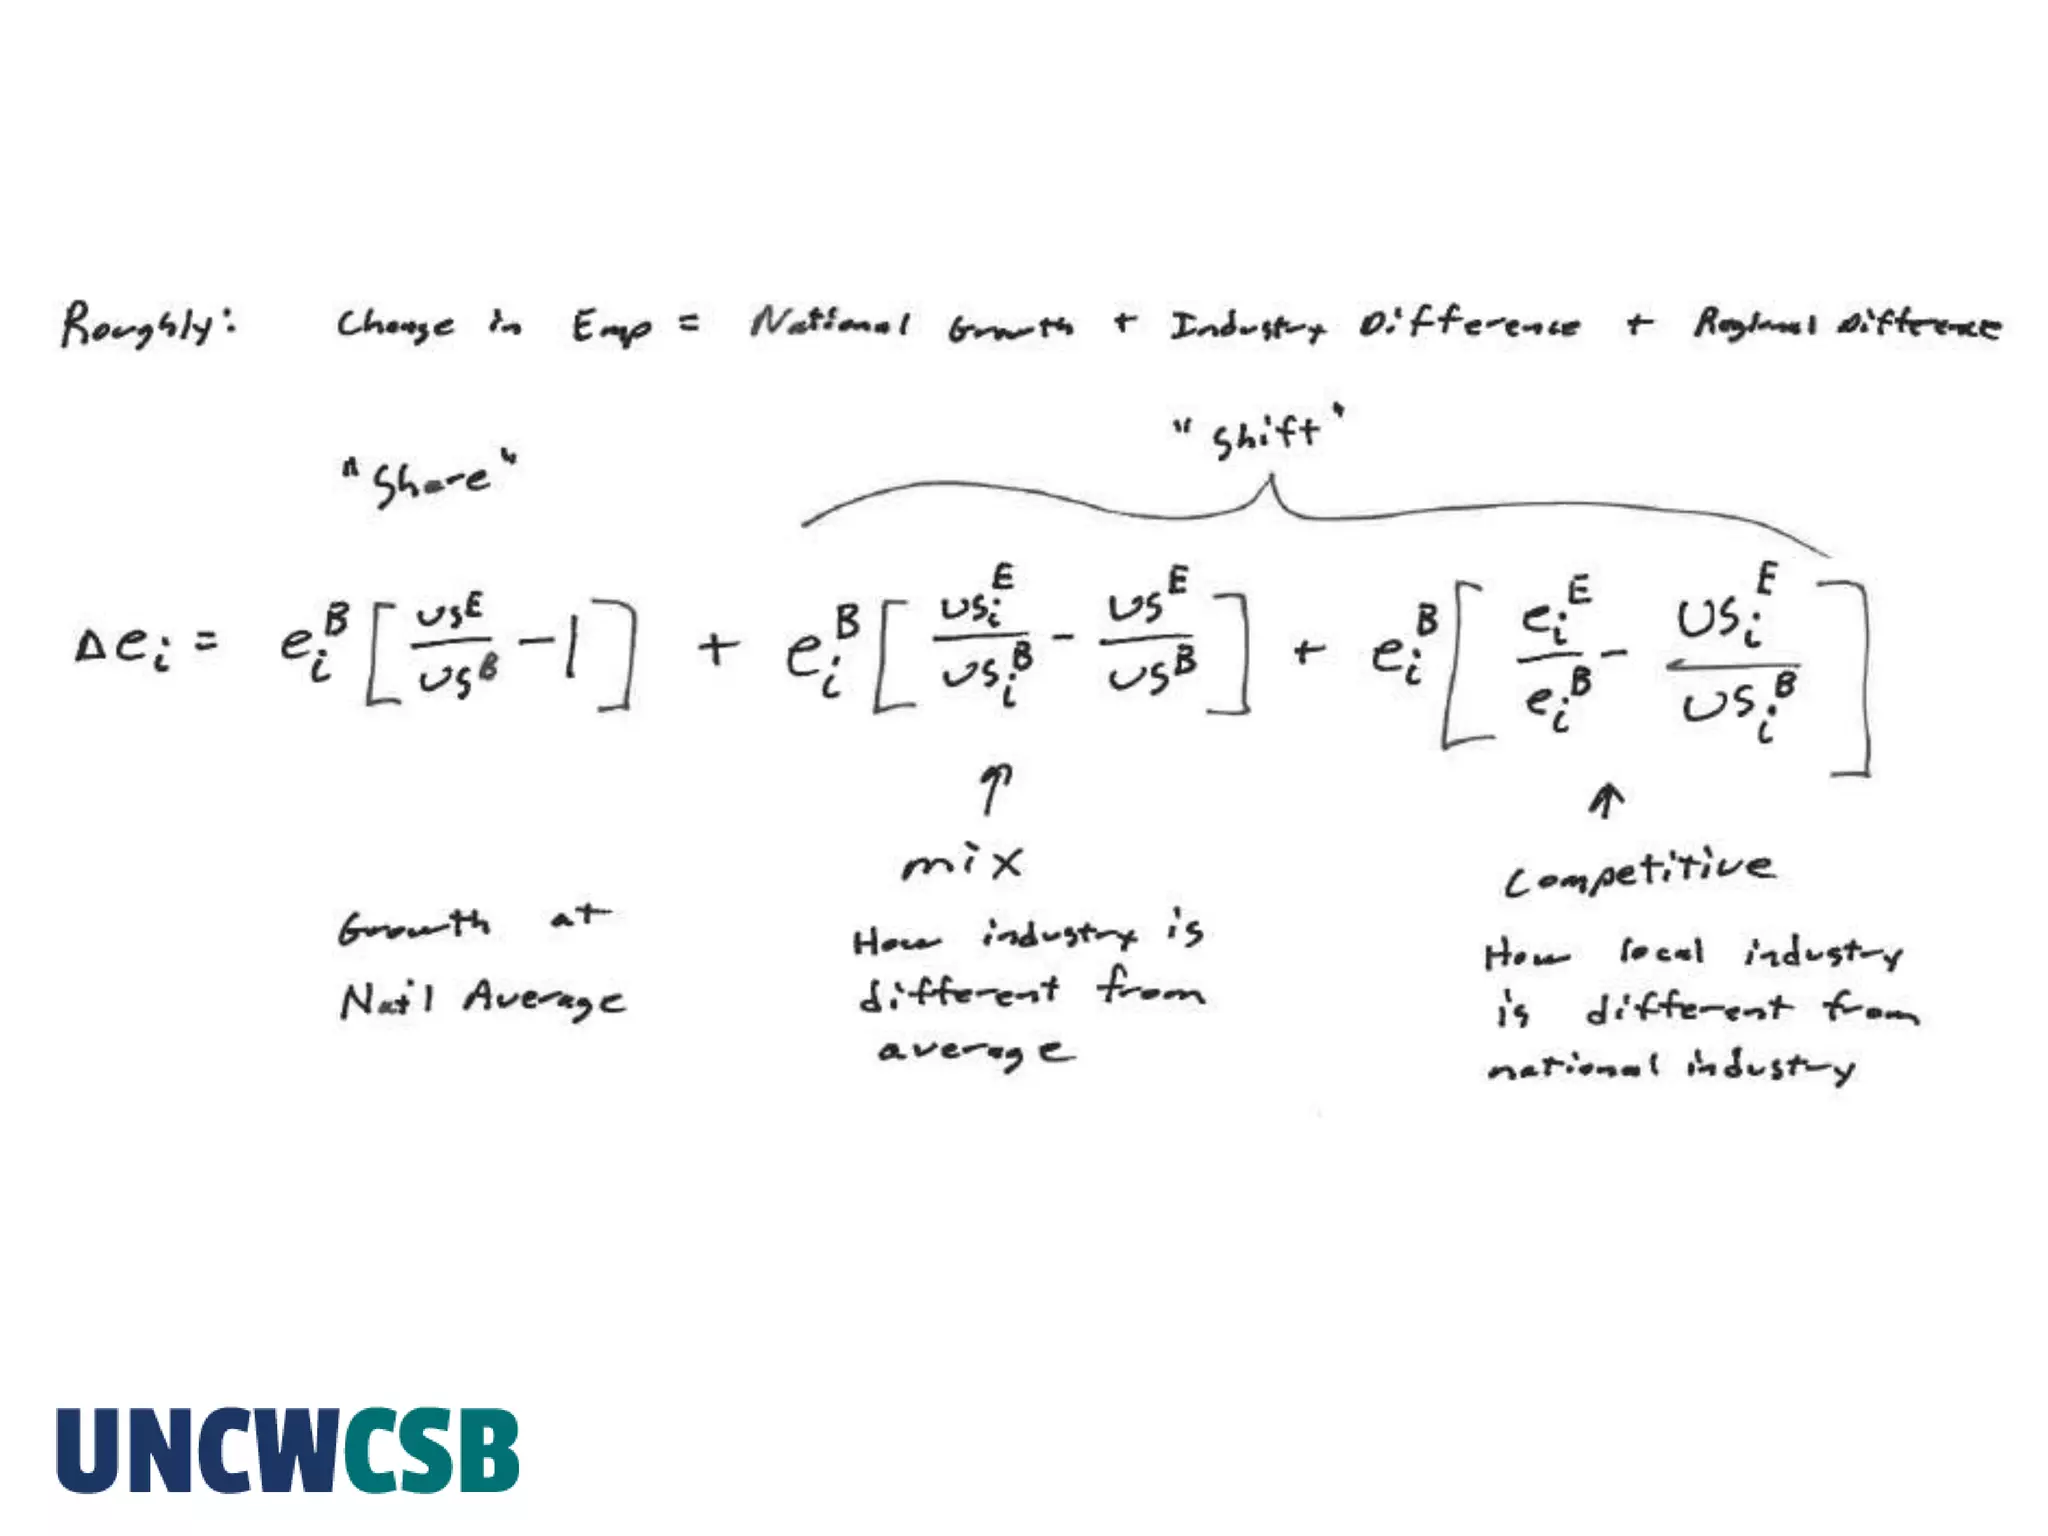 Roughly: Change in Emp = National Growth + Industry Difference + Regional Difference
"Share"
"Shift"
Δe_i = e_i^B [ US^E / US^B - 1 ] + e_i^B [ US_i^E / US_i^B - US^E / US^B ] + e_i^B [ e_i^E / e_i^B - US_i^E / US_i^B ]
↑
mix
↑
Competitive
Growth at
Nat'l Average
How industry is
different from
average
How local industry
is different from
national industry
UNCWCSB